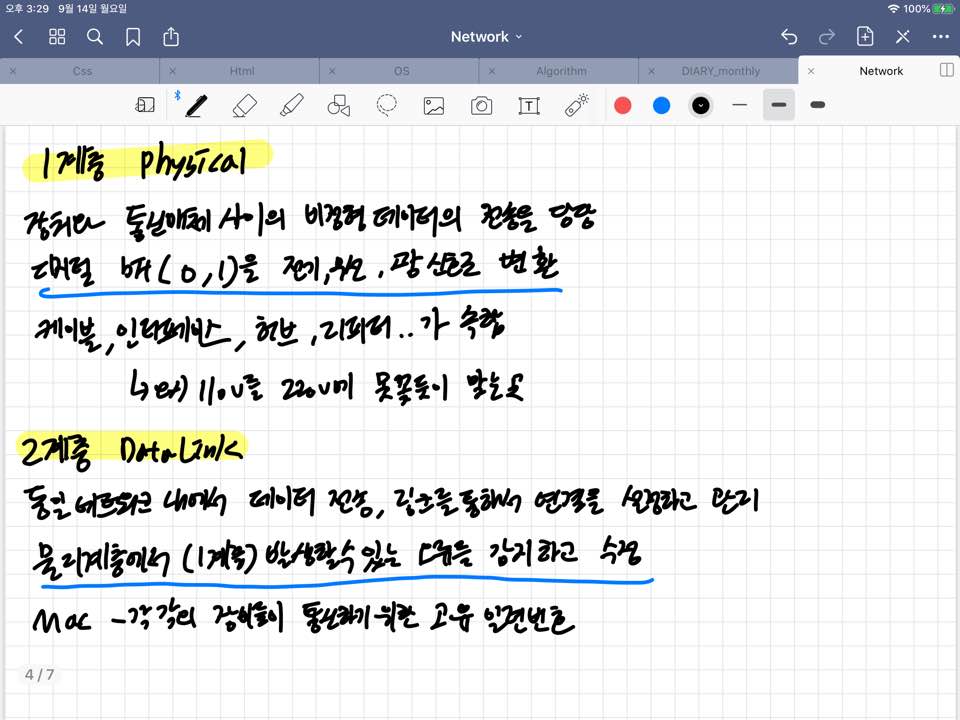 오후 3:29 9월 14일 월요일 100%
Network
Css Html OS Algorithm DIARY_monthly Network
1계층 Physical
장치와 통신매체 사이의 비정형 데이터의 전송을 담당
디지털 bit (0,1)을 전기,무선,광 신호로 변환
케이블, 인터페이스, 허브, 리피터..가 속함
↳ 110V를 220V에 못꽂듯이 맞는
2계층 DataLink
동일 네트워크 내에서 데이터 전송, 링크를 통해서 연결을 설정하고 관리
물리계층에서 (1계층) 발생할 수 있는 오류를 감지하고 수정
Mac - 각각의 장비들이 통신하기 위한 고유 일련번호
4 / 7